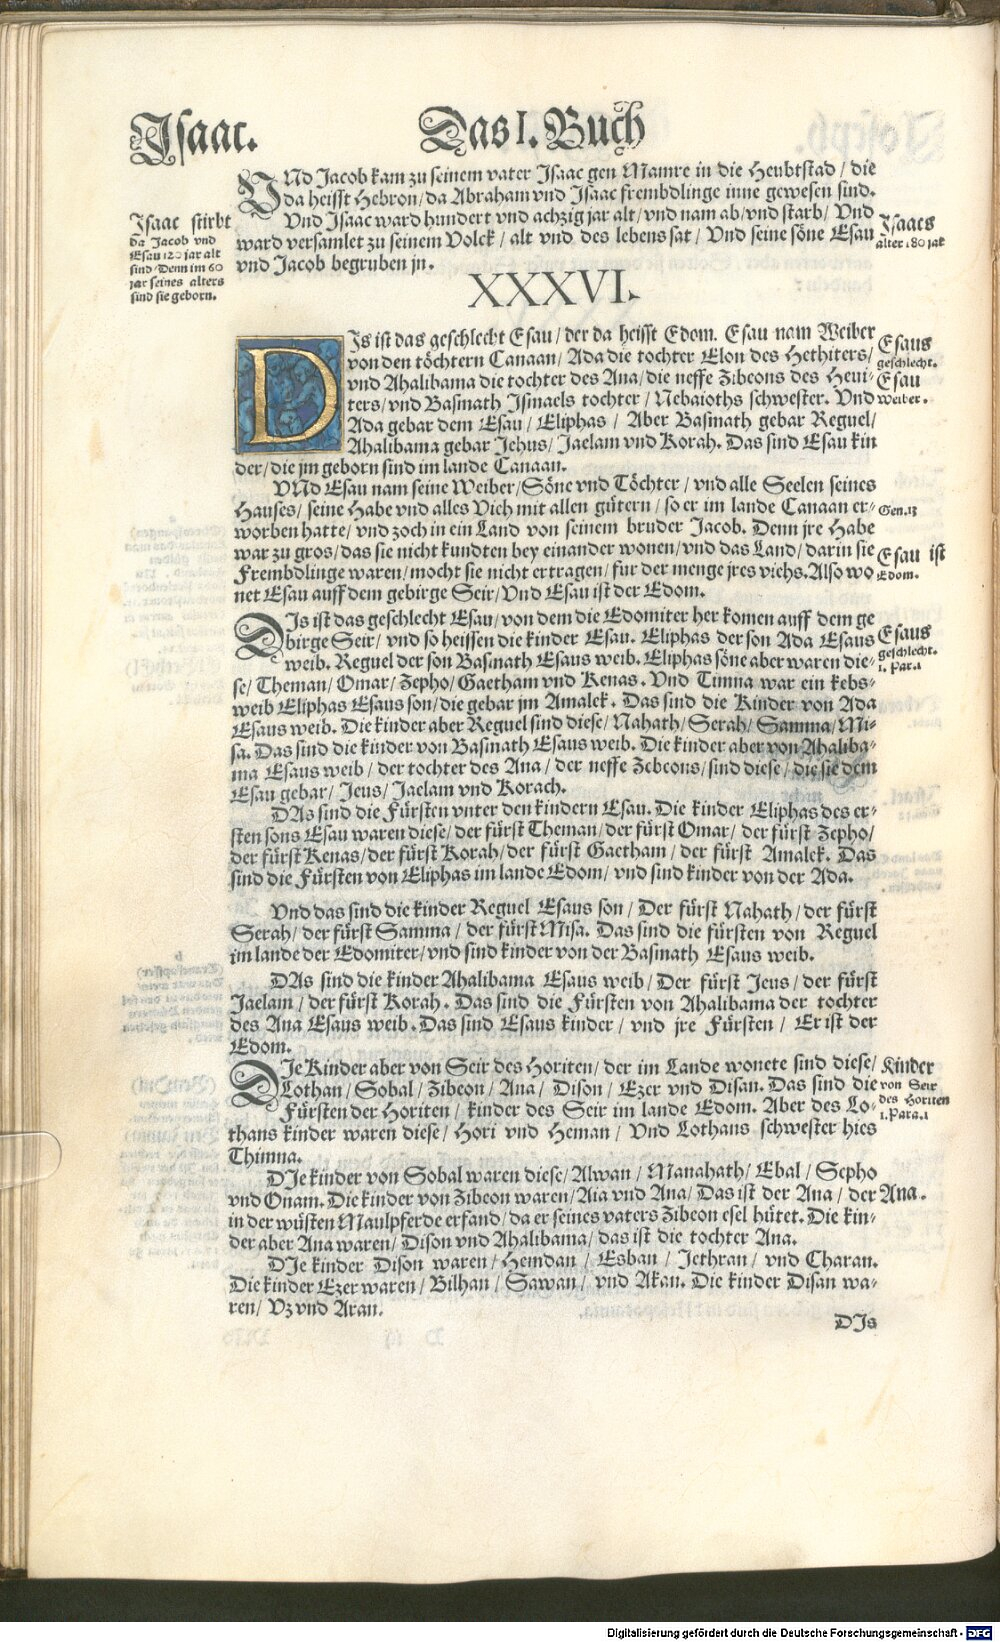 Isaac.
Das I. Buch
VNd Jacob kam zu seinem vater Isaac gen Mamre in die Heubtstad / die
da heisst Hebron / da Abraham vnd Isaac frembdlinge inne gewesen sind.
Vnd Isaac ward hundert vnd achzig jar alt / vnd nam ab / vnd starb / Vnd
ward versamlet zu seinem Volck / alt vnd des lebens sat / Vnd seine söne Esau
vnd Jacob begruben jn.
Isaac stirbt
da Jacob vnd
Esau 120 jar alt
sind Denn im 60
jar seines alters
sind sie geborn.
Isaacs
alter 180 jar
XXXVI.
DIs ist das geschlecht Esau / der da heisst Edom. Esau nam Weiber
von den töchtern Canaan / Ada die tochter Elon des Hethiters /
vnd Ahalibama die tochter des Ana / die neffe Zibeons des Heui-
ters / vnd Basmath Ismaels tochter / Nebaioths schwester. Vnd
Ada gebar dem Esau / Eliphas / Aber Basmath gebar Reguel /
Ahalibama gebar Jehus / Jaelam vnd Korah. Das sind Esau kin
der / die jm geborn sind im lande Canaan.
Esaus
geschlecht.
Esau
weiber.
VNd Esau nam seine Weiber / Söne vnd Töchter / vnd alle Seelen seines
Hauses / seine Habe vnd alles Vich mit allen gütern / so er im lande Canaan er-
worben hatte / vnd zoch in ein Land von seinem bruder Jacob. Denn jre Habe
war zu gros / das sie nicht kundten bey einander wonen / vnd das Land / darin sie
Frembdlinge waren / mocht sie nicht ertragen / fur der menge jres viehs. Also wo
net Esau auff dem gebirge Seir / Vnd Esau ist der Edom.
Gen. 13
Esau ist
Edom.
DIs ist das geschlecht Esau / von dem die Edomiter her komen auff dem ge
birge Seir / vnd so heissen die kinder Esau. Eliphas der son Ada Esaus
weib. Reguel der son Basmath Esaus weib. Eliphas söne aber waren die-
se / Theman / Omar / Zepho / Gaetham vnd Kenas. Vnd Timna war ein kebs-
weib Eliphas Esaus son / die gebar jm Amalek. Das sind die Kinder von Ada
Esaus weib. Die kinder aber Reguel sind diese / Nahath / Serah / Samma / Mi-
sa. Das sind die kinder von Basmath Esaus weib. Die kinder aber von Ahaliba-
ma Esaus weib / der tochter des Ana / der neffe Zebeons / sind diese / die sie dem
Esau gebar / Jeus / Jaelam vnd Korach.
Esaus
geschlecht.
1. Par. 1
DAs sind die Fürsten vnter den kindern Esau. Die kinder Eliphas des er-
sten sons Esau waren diese / der fürst Theman / der fürst Omar / der fürst Zepho /
der fürst Kenas / der fürst Korah / der fürst Gaetham / der fürst Amalek. Das
sind die Fürsten von Eliphas im lande Edom / vnd sind kinder von der Ada.
Vnd das sind die kinder Reguel Esaus son / Der fürst Nahath / der fürst
Serah / der fürst Samma / der fürst Misa. Das sind die fürsten von Reguel
im lande der Edomiter / vnd sind kinder von der Basmath Esaus weib.
DAs sind die kinder Ahalibama Esaus weib / Der fürst Jeus / der fürst
Jaelam / der fürst Korah. Das sind die Fürsten von Ahalibama der tochter
des Ana Esaus weib. Das sind Esaus kinder / vnd jre Fürsten / Er ist der
Edom.
DIe Kinder aber von Seir des Horiten / der im Lande wonete sind diese /
Lothan / Sobal / Zibeon / Ana / Dison / Ezer vnd Disan. Das sind die
Fürsten der Horiten / kinder des Seir im lande Edom. Aber des Lo-
thans kinder waren diese / Hori vnd Heman / Vnd Lothans schwester hies
Thimna.
Kinder
von Seir
des Horiten
1. Para. 1
DIe kinder von Sobal waren diese / Alwan / Manahath / Ebal / Sepho
vnd Onam. Die kinder von Zibeon waren / Aia vnd Ana / Das ist der Ana / der
in der wüsten Maulpferde erfand / da er seines vaters Zibeon esel hütet. Die kin-
der aber Ana waren / Dison vnd Ahalibama / das ist die tochter Ana.
Ana.
DIe kinder Dison waren / Hemdan / Esban / Jethran / vnd Charan.
Die kinder Ezer waren / Bilhan / Sawan / vnd Akan. Die kinder Disan wa-
ren / Vz vnd Aran.
DIs
Digitalisierung gefördert durch die Deutsche Forschungsgemeinschaft - DFG